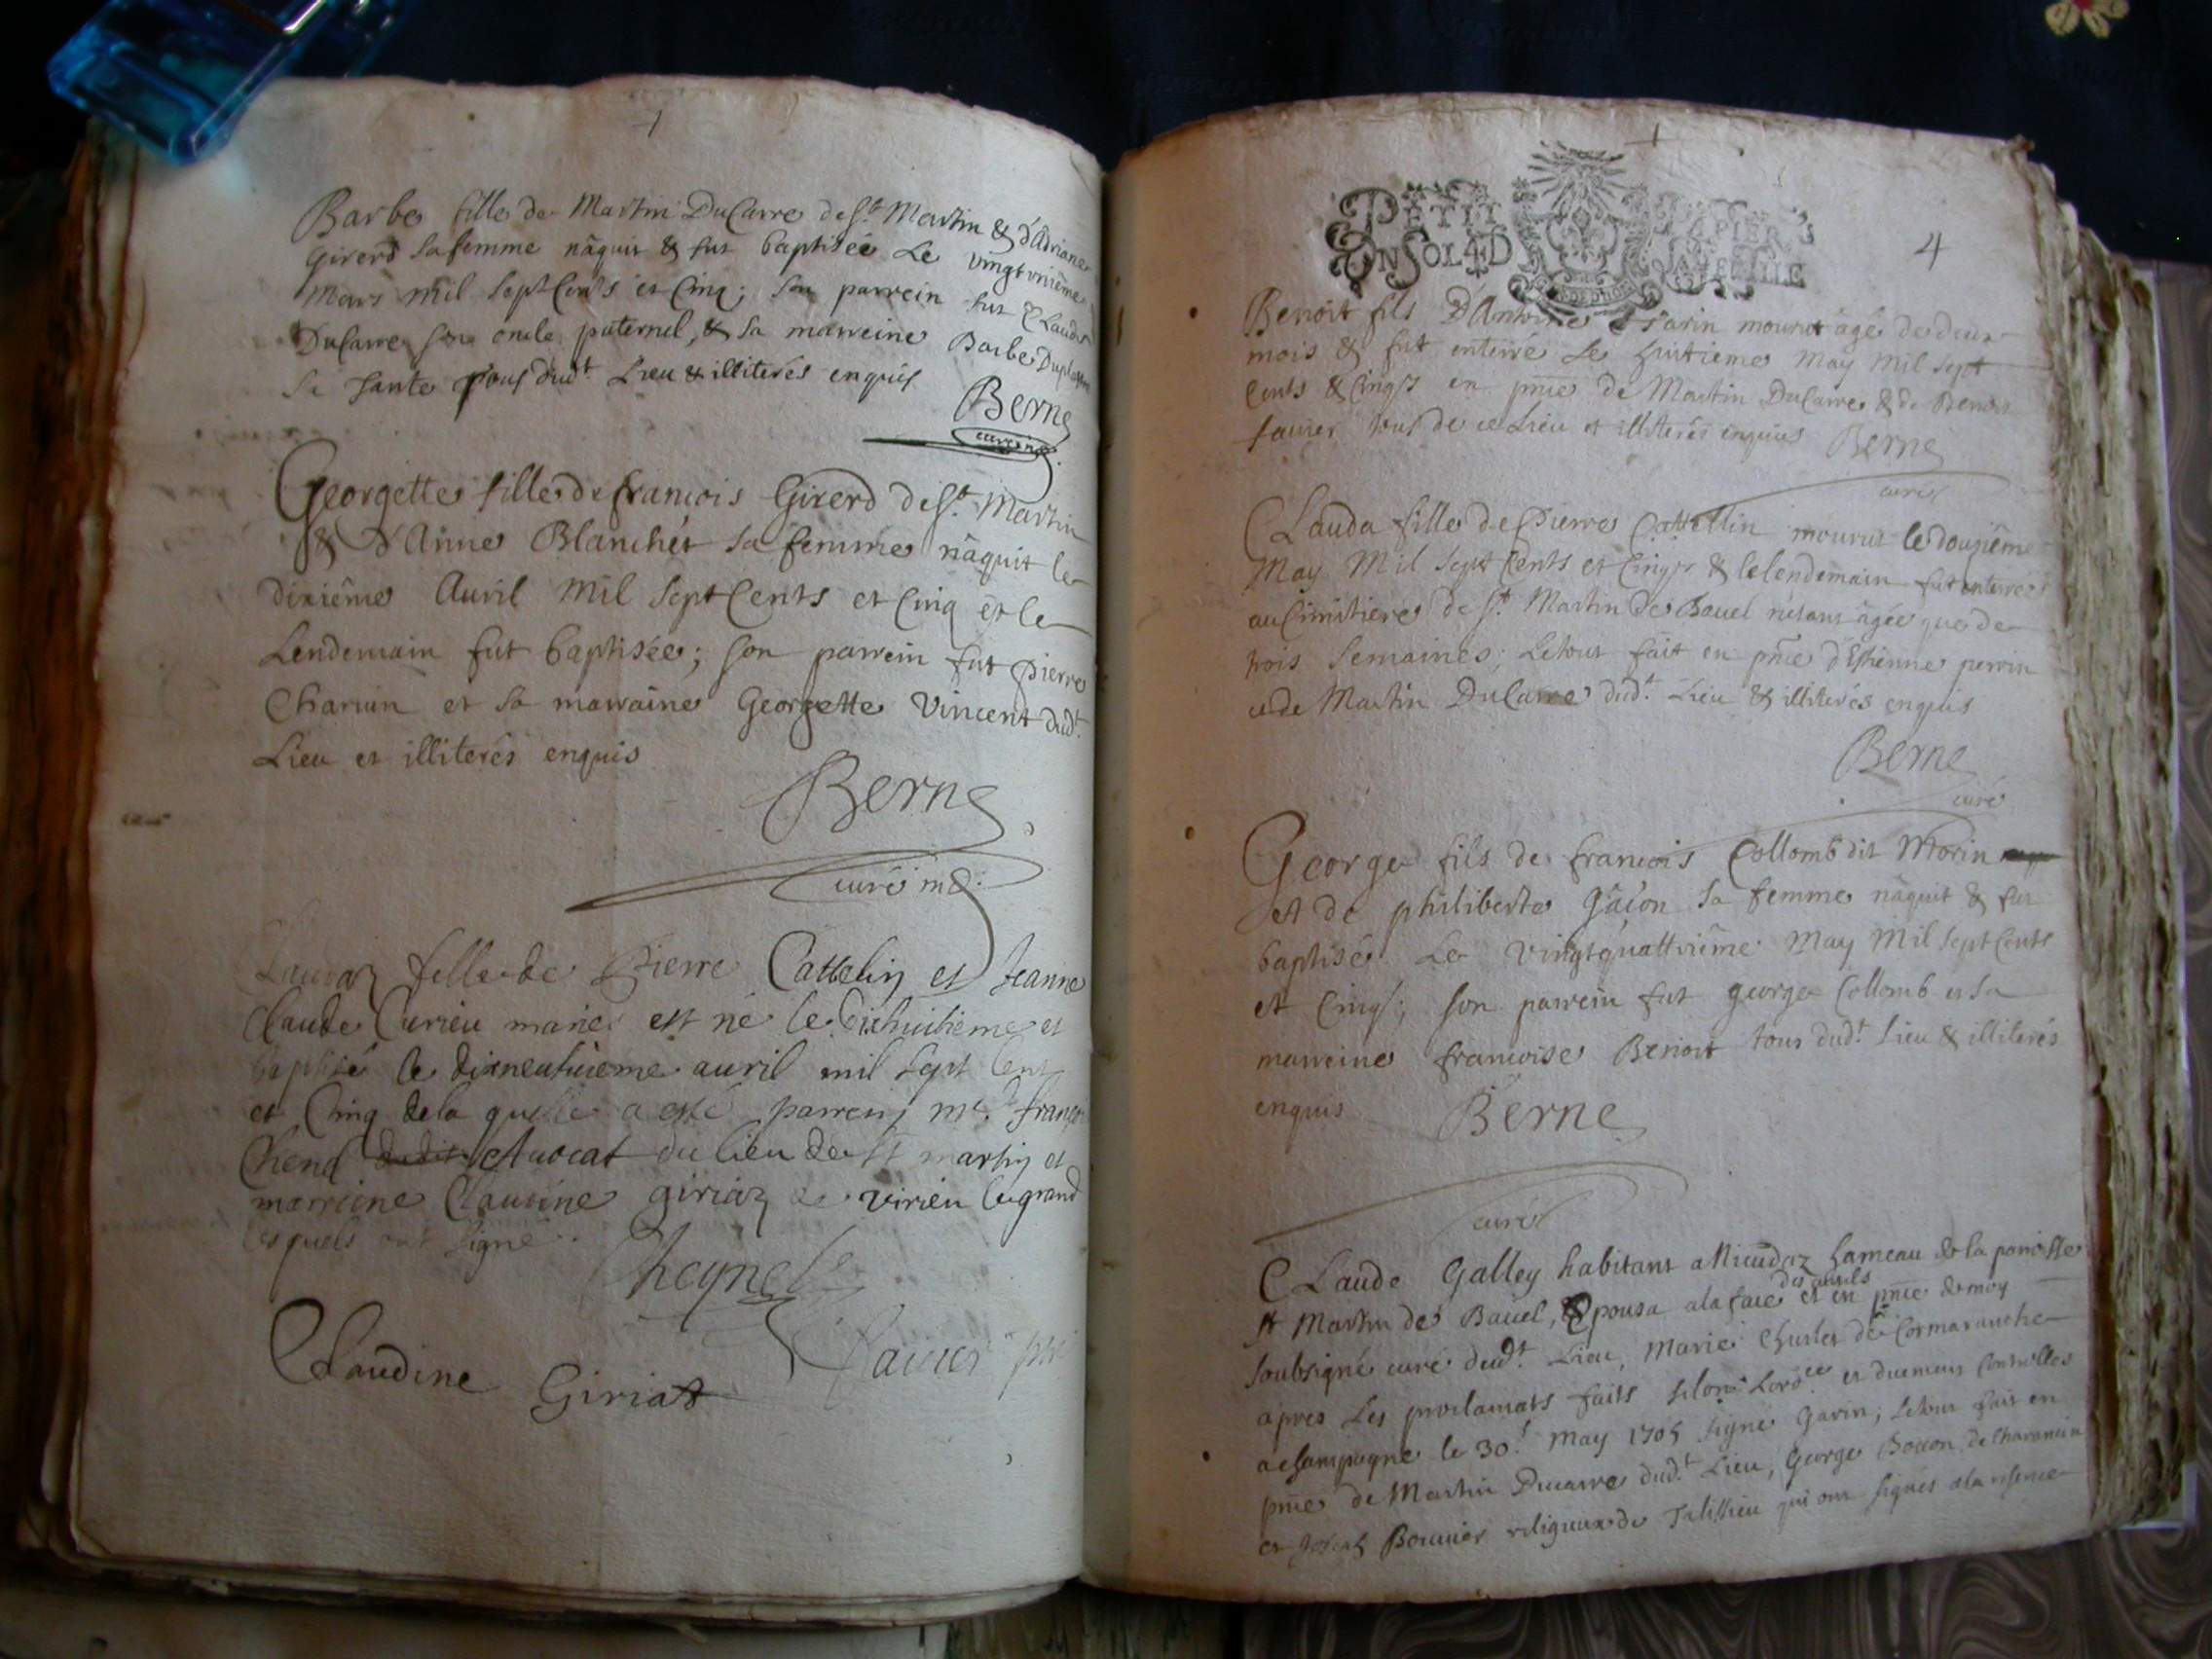 Barbe fille de Martin DuCarre de St. Martin & d'Adriane
Girerd sa femme nâquit & fut baptisée Le vingtunième
Mars mil sept Cents et Cinq; son parrein fut Claude
DuCarre son oncle paternel, & sa marreine Barbe
sa tante tous dudt. Lieu & illiterés enquis
Berne
curé
Georgette fille de francois Girerd de St. Martin
& d'Anne Blanchet sa femme nâquit le
dixième Auril mil sept Cents et Cinq et le
Lendemain fut baptisée; son parrein fut pierre
Charuin et sa marraine Georgette Vincent dudt.
Lieu et illiterés enquis
Berne
curé
fille de Pierre Cattelin et Jeanne
Claude Curieu mariés est né le dixhuitieme et
baptisé le dixneufuieme auril mil sept Cent
et Cinq de la quelle a esté parrein Me. françois
Auocat du lieu de st martin et
marreine Claudine giriaz de virieu legrand
lesquels ont signé
Claudine Giriat
PETIT PAPIER
UN SOL 4 D LA FEUILLE
4
Benoît fils D'Antoine mourut âgé de deux
mois & fut enterré Le huitieme May mil sept
Cents & Cinq en pnce de Martin DuCarre & de Benoit
tous de ce Lieu et illiterés enquis
Berne
curé
Clauda fille de Pierre Cattellin mourut le douzième
May Mil sept Cents et Cinq & le lendemain fut enterrée
au Cimitiere de St. Martin de Bauel n'etant âgée que de
trois semaines; Letout fait en pnce d'Estienne perrin
et de Martin DuCarre dudt. Lieu & illiterés enquis
Berne
curé
George fils de francois Collomb dit Morin
et de philiberte Gâcon sa femme nâquit & fut
baptisé Le vingtquattrième May Mil sept Cents
et Cinq; son parrein fut george Collomb et sa
marreine francoise Benoit tous dudt. Lieu & illiterés
enquis Berne
curé
Claude Galley habitant a hameau de la paroisse
St Martin de Bauel, Epousa a la face et en pnce de moy
soubsigné curé dudt. Lieu, Marie de Cormaranche
apres Les proclamats faits selon Lordce et duement Controlles
a Champagne le 30e May 1705 signé Garin; Letout fait en
pnce de Martin Ducarre dudt. Lieu, George de Charancin
et Joseph Bouuier religieux de Talissieu qui ont signés